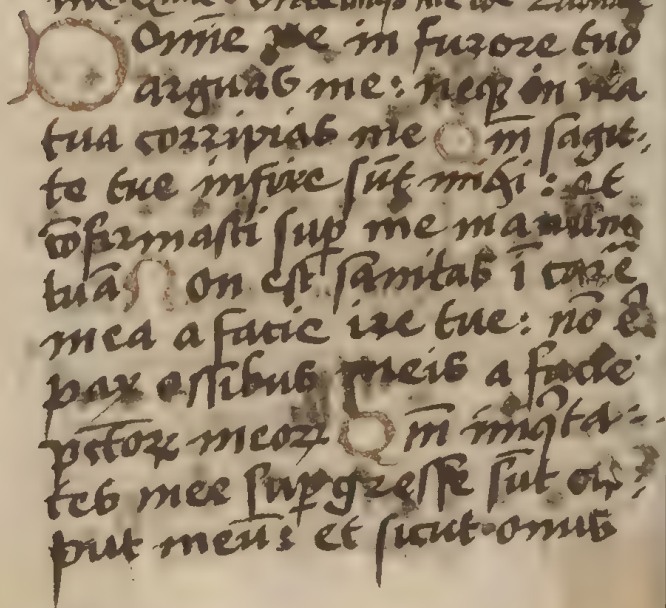 Domīe ne in furore tuo
arguas me: neqꝫ in ira
tua corripias me Qm̄ sagit-
te tue infixe sūt mihi: et
cōfirmasti suꝑ me manum
tuā Non est sanitas ī carē
mea a facie ire tue: nō ē
pax ossibus meis a facie
pctōrꝝ meorꝝ Qm̄ iniqͥta-
tes mee suꝑgresse sūt ca-
put meū: et sicut onus